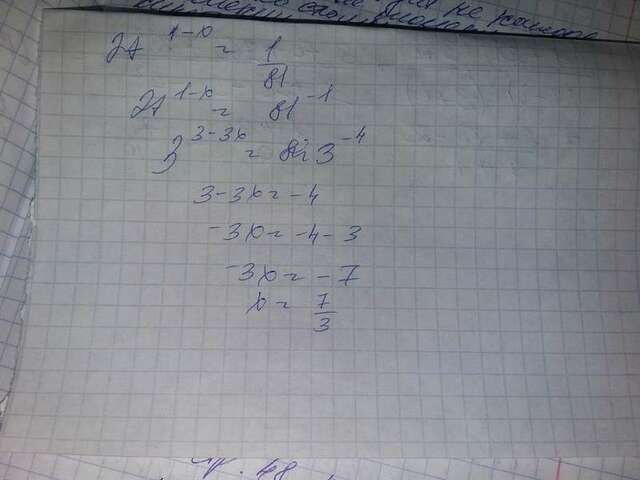 не каждое
27^{1-x} = \frac{1}{81}
27^{1-x} = 81^{-1}
3^{3-3x} = 3^{-4}
3-3x = -4
-3x = -4-3
-3x = -7
x = \frac{7}{3}
48